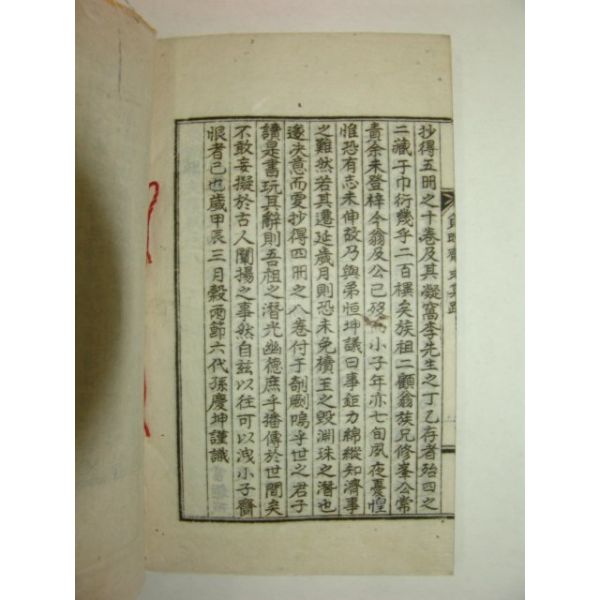 抄得五冊之十卷及其凝窩李先生之丁乙存者殆四之
二藏于巾衍幾乎二百禩矣族祖二顧翁族兄修峯公常
責余未登梓今翁及公已歿而小子年亦七旬夙夜憂惶
惟恐有志未伸故乃與弟恒坤議曰事鉅力綿縱知濟事
之難然若其遷延歲月則恐未免櫝玉之毀淵珠之潛也
遂決意而更抄得四冊之八卷付于剞劂嗚乎世之君子
讀是書玩其辭則吾祖之潛光幽德庶乎播傳於世間矣
不敢妄擬於古人闡揚之事然自玆以往可以洩小子齎
恨者已也歲甲辰三月穀雨節六代孫慶坤謹識